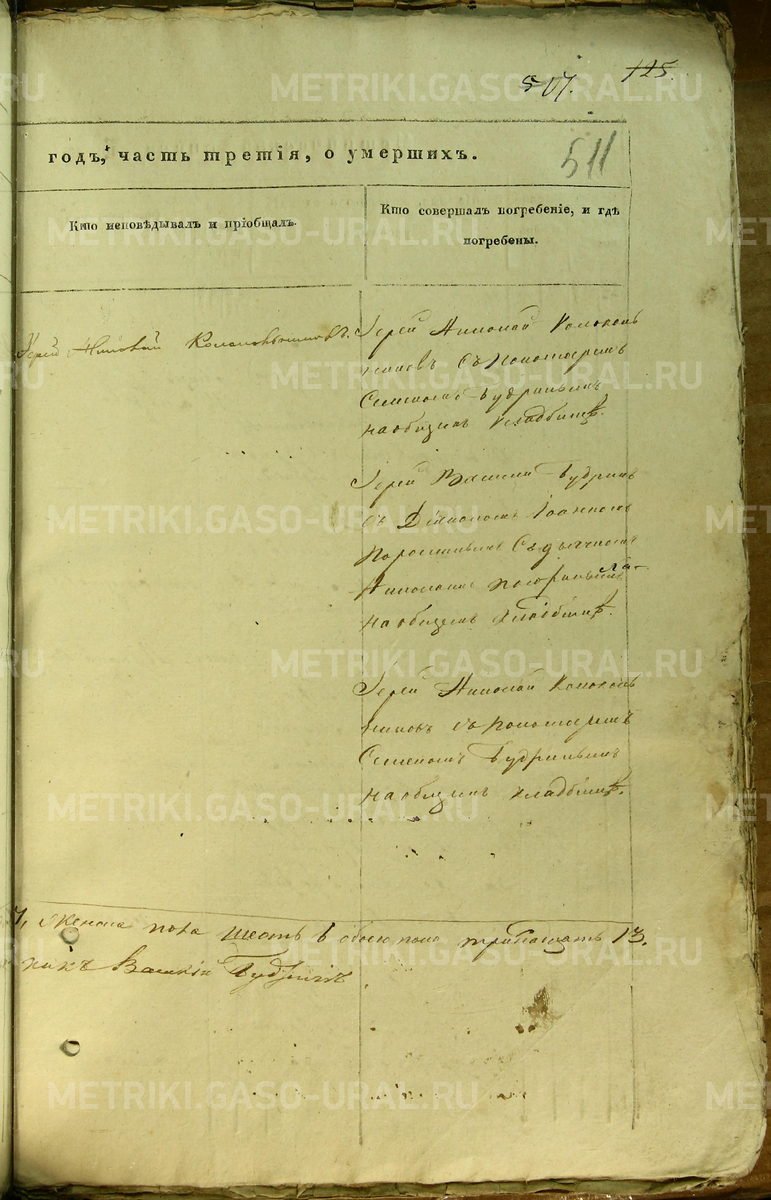 507. 125.
511
годъ, часть третія, о умершихъ.
Кто исповѣдывалъ и пріобщалъ.
Кто совершалъ погребеніе, и гдѣ
погребены.
Іерей Николай
Іерей Николай Колоколь
никовъ съ Пономаремъ
Семеномъ Будринымъ
на общемъ кладбищѣ.
Іерей Василій Будринъ
съ Діакономъ Іоанномъ
съ дьячкомъ
Николаемъ
на общемъ кладбищѣ.
Іерей Николай Колоколь
никовъ съ Пономаремъ
Семеномъ Будринымъ
на общемъ кладбищѣ.
7, женска пола шесть 6 обоего пола тринадцать 13.
Василій Будринъ
METRIKI.GASO-URAL.RU